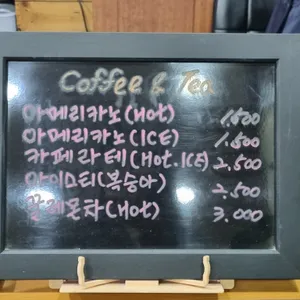 Coffee & Tea
아메리카노(Hot) 1.500
아메리카노(ICE) 1.500
카페라테(Hot.ICE) 2.500
아이스티(복숭아) 2.500
꿀레몬차(Hot) 3.000